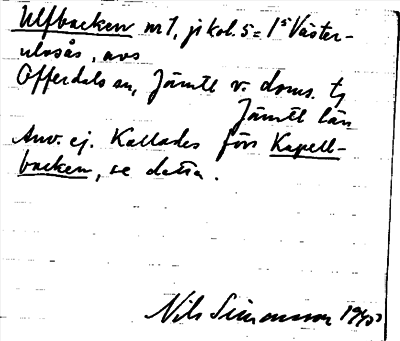 Ulfbacken nr 1, jkol. 5 = 1⁵ Väster-
ulvsås, avs
Offerdals sn, Jämtl v. doms. tg
Jämtl län
Anv. ej. Kallades förr Kapell-
backen, se detta.
Nils Simonsson